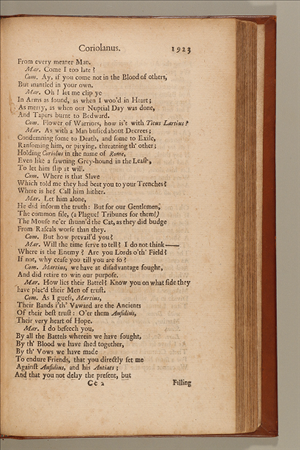 Coriolanus. 1923
From every meaner Man.
Mar. Come I too late?
Com. Ay, if you come not in the Blood of others,
But mantled in your own.
Mar. Oh! let me clip ye
In Arms as sound, as when I woo'd in Heart;
As merry, as when our Nuptial Day was done,
And Tapers burnt to Bedward.
Com. Flower of Warriors, how is't with Titus Lartius?
Mar. As with a Man busied about Decrees;
Condemning some to Death, and some to Exile,
Ransoming him, or pitying, threatning th' other;
Holding Coriolus in the name of Rome,
Even like a fawning Grey-hound in the Leash,
To let him slip at will.
Com. Where is that Slave
Which told me they had beat you to your Trenches?
Where is he? Call him hither.
Mar. Let him alone,
He did inform the truth: But for our Gentlemen,
The common file, (a Plague! Tribunes for them!)
The Mouse ne'er shunn'd the Cat, as they did budge
From Rascals worse than they.
Com. But how prevail'd you?
Mar. Will the time serve to tell? I do not think——
Where is the Enemy? Are you Lords o'th' Field?
If not, why cease you till you are so?
Com. Martius, we have at disadvantage fought,
And did retire to win our purpose.
Mar. How lies their Battel? Know you on what side they
have plac'd their Men of trust.
Com. As I guess, Martius,
Their Bands i'th' Vaward are the Ancients
Of their best trust: O'er them Aufidius,
Their very heart of Hope.
Mar. I do beseech you,
By all the Battels wherein we have fought,
By th' Blood we have shed together,
By th' Vows we have made
To endure Friends, that you directly set me
Against Aufidius, and his Antiats;
And that you not delay the present, but
Cc 2 Filling